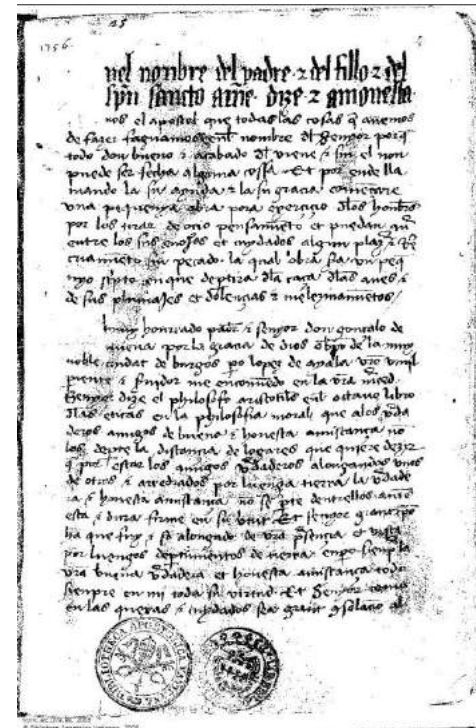 25
1756
nel nonbre del padre ⁊ del fillo ⁊ del
spũ sancto amẽ dize ⁊ amonesta
nos el apostol que todas las cosas q̃ auemos
de fazer fagamos enl nombre dl senyor porq̃
todo don bueno ⁊ acabado dl viene ⁊ sin el non
puede ser fecha alguna cossa Et por ende lla
mando la su ayuda ⁊ la su gracia començare
vna pequenya obra pora exercicio dlos honbrs
por los tirar de ocio pensamiẽto et puedan
entre los sus enojos et cuydados algun plazer
sin pecado la qual obra sia vn peq̃
nyo en que departira dla caça dlas aues ⁊
de sus plumajes et dolencias ⁊ melezinamientos
muy honrrado padre ⁊ senyor don gonçalo de
mena por la gracia de dios obpo de la muy
noble ciudat de burgos po lopez de ayala vro vmil
piente ⁊ seruidor me encomiendo en la vra merd
Senyor dize el philosofo aristotiles enl octauo libro
dlas eticas en la philosofia moral que alos vda
deros amigos de buena ⁊ honesta amistança no
los depte la distancia de logares que quiere dezir
q̃ por estar los amigos vdaderos alongados vnos
de otros ⁊ arredrados por luenga tierra la vdade
ra ⁊ honesta amistança no se pte dentrellos antes
esta ⁊ dura firme en su vtut Et senyor grant tpo
ha que fuy ⁊ so alongado de vra psencia et vista
por luengos deptimentos de tierra enpo sienp la
vra buena vdadera et honesta amistança todo
sienpre en mi toda su virtud Et Senyor como
en las quexas ⁊ cuydados sea grant 9solacio al